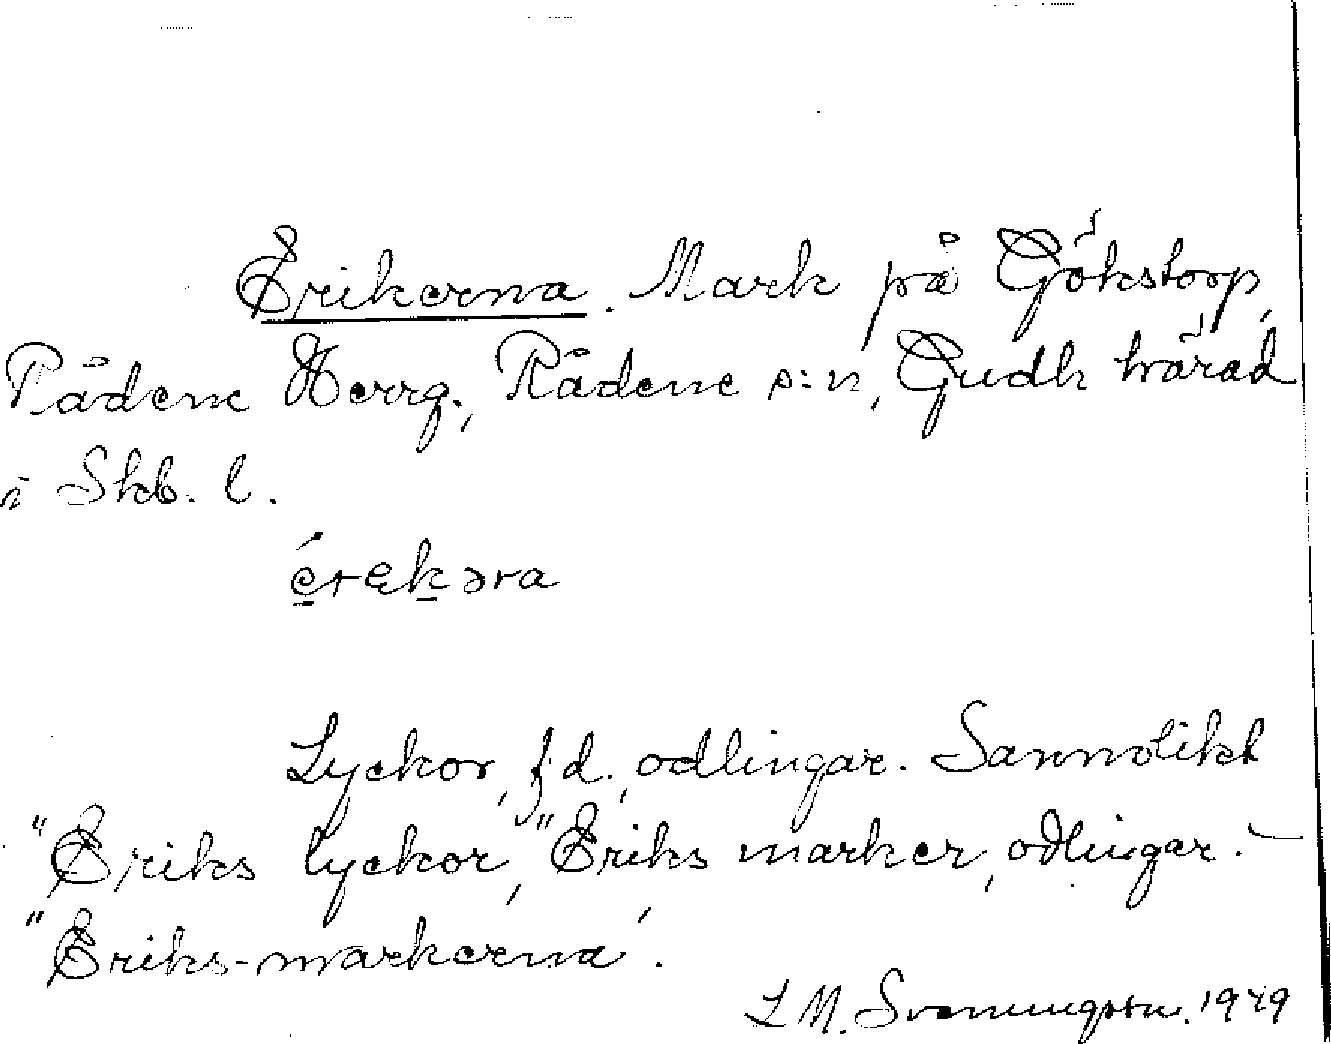 Erikerna. Mark på Gökstorp,
Rådene Herrg., Rådene s:n, Gudh härad
i Skb. l.
érekəra
Lyckor, f.d. odlingar. Sannolikt
"Eriks lyckor," Eriks marker, odlingar. –
"Eriks-markerna'.
L M. Svenungsson. 1949